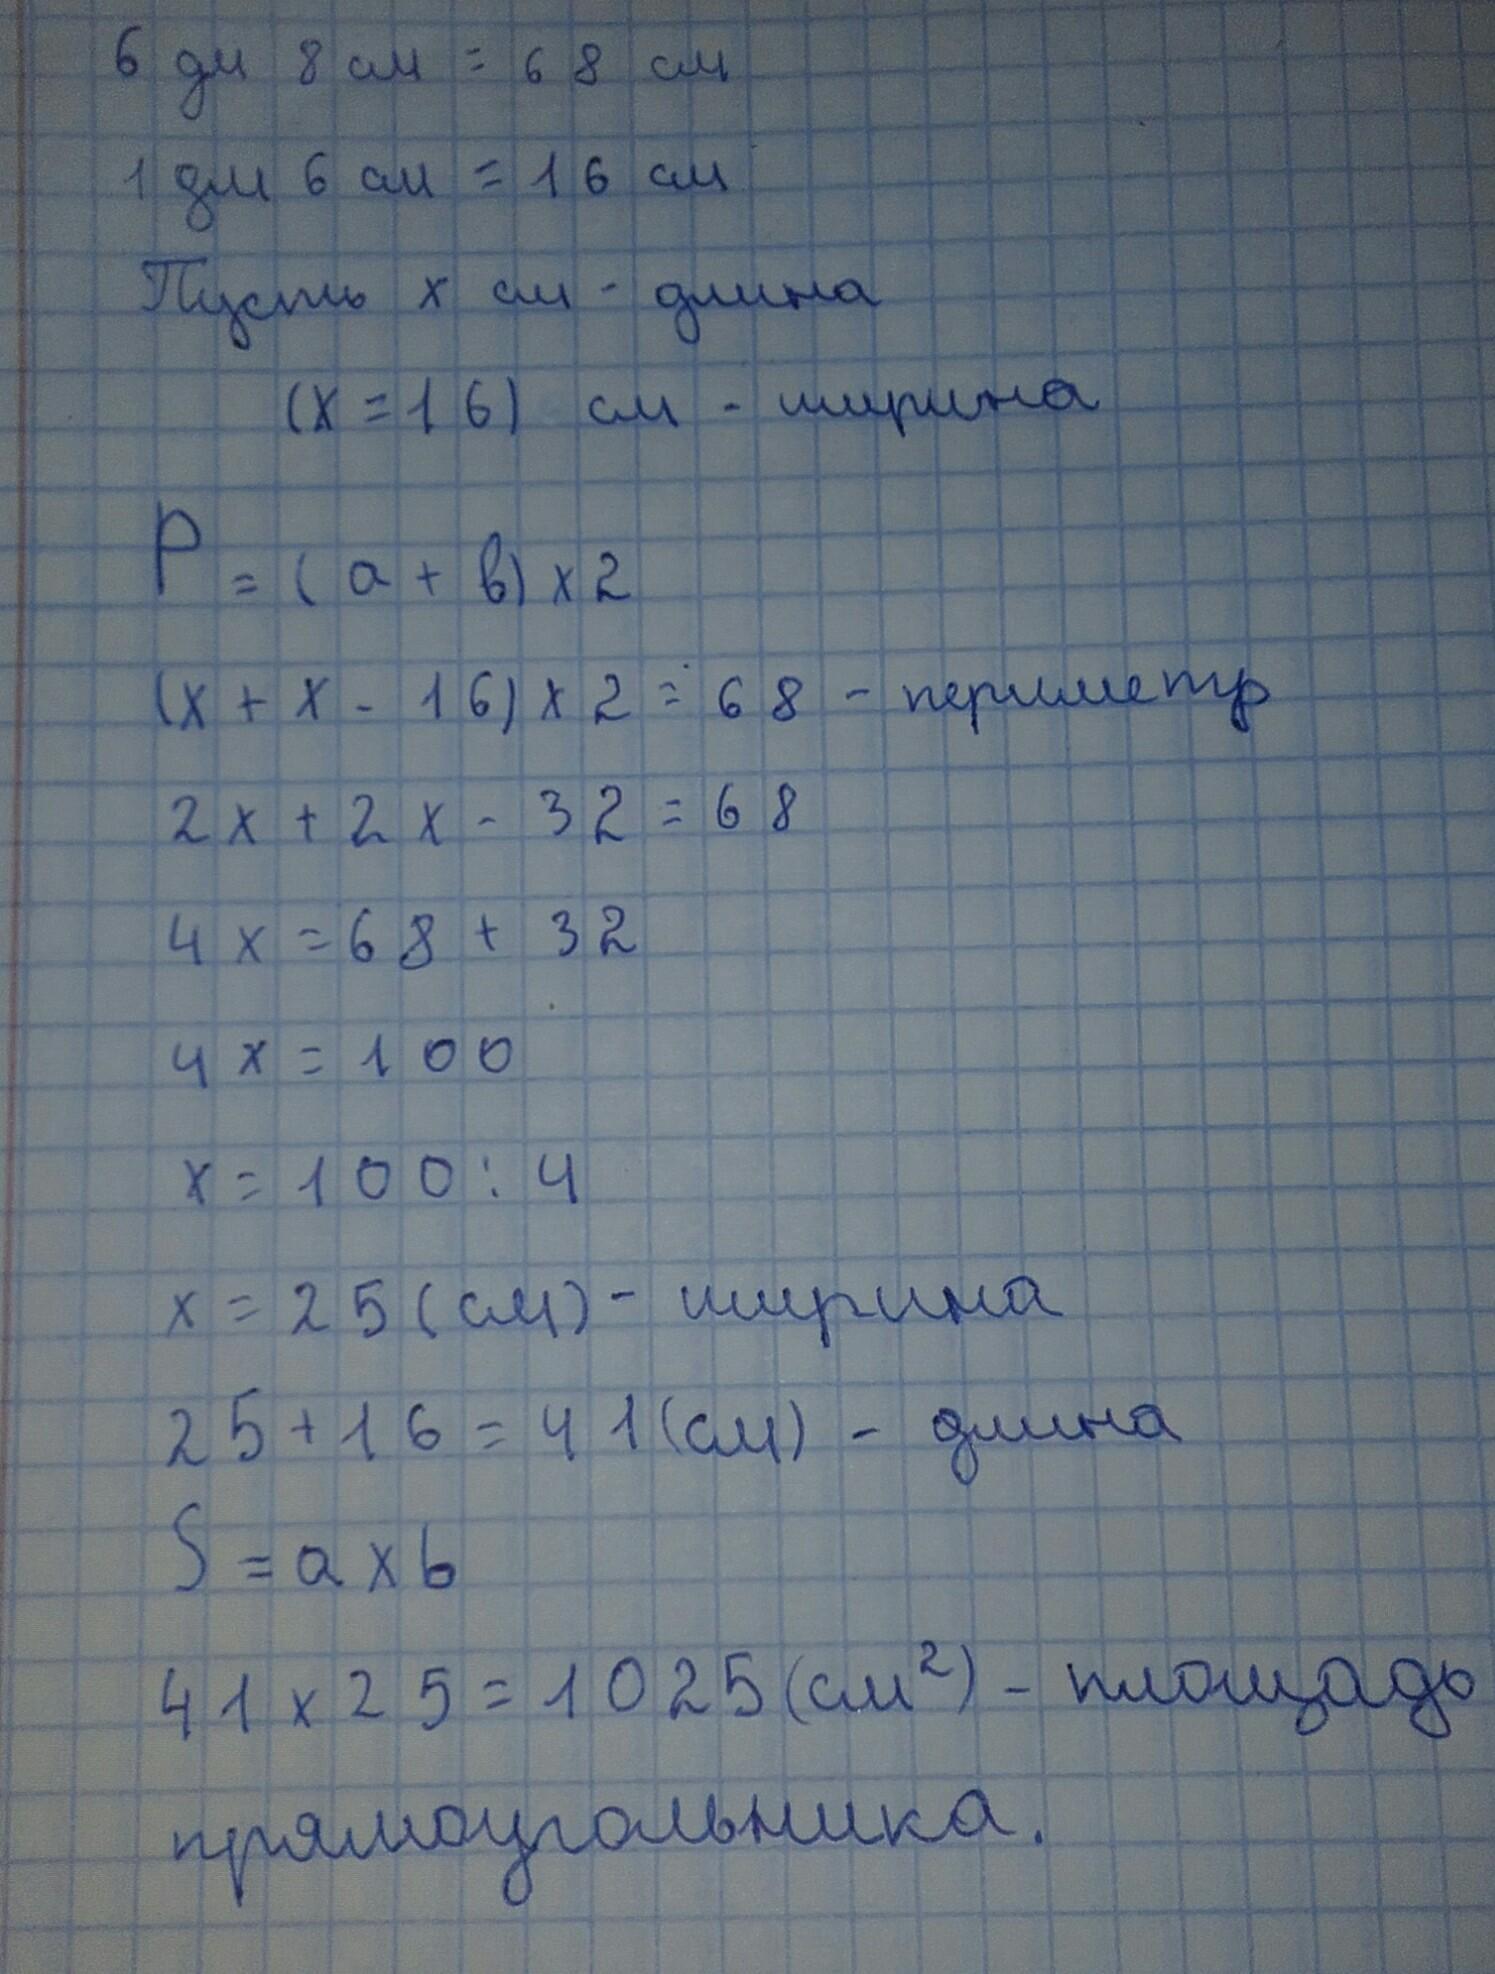 6 дм 8 см = 68 см
1 дм 6 см = 16 см
Пусть х см - длина
(х = 16) см - ширина
P = (a + b) х 2
(х + х - 16) х 2 = 68 - периметр
2х + 2х - 32 = 68
4х = 68 + 32
4х = 100
х = 100 : 4
х = 25 (см) - ширина
25 + 16 = 41 (см) - длина
S = a х b
41 х 25 = 1025 (см²) - площадь
прямоугольника.